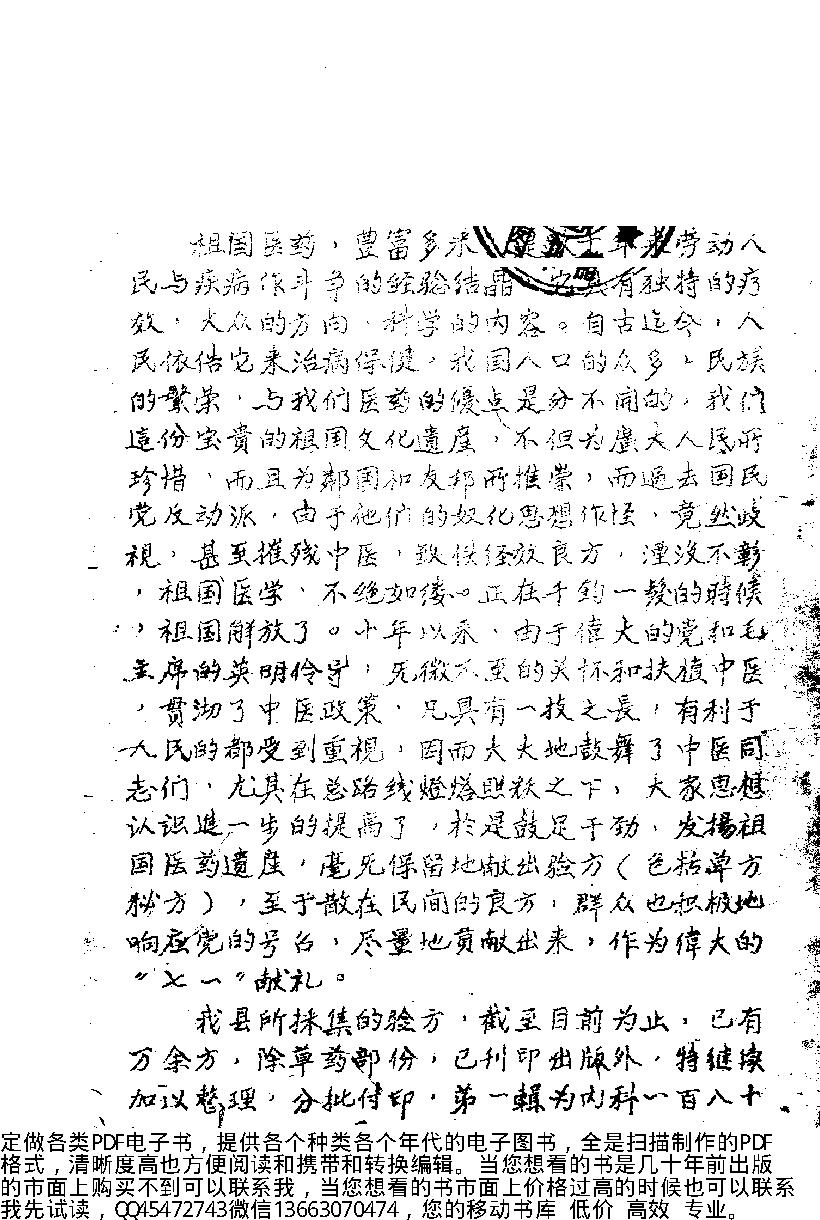 祖国医药，豊富多采，是数千年来劳动人
民与疾病作斗争的经验结晶，它具有独特的疗
效，大众的方向，科学的内容。自古迄今，人
民依估它来治病保健，我国人口的众多，民族
的繁荣，与我们医药的優点是分不開的，我们
這份宝貴的祖国文化遺産，不但为廣大人民所
珍惜，而且为鄰国和友邦所推崇，而過去国民
党反动派，由于他们的奴化思想作怪，竟然歧
視，甚至摧残中医，致使经效良方，湮没不彰
，祖国医学，不绝如缕。正在千鈞一髮的時候
，祖国解放了。十年以来，由于偉大的党和毛
主席的英明伶导，无微不至的关怀和扶植中医
，貫沏了中医政策，凡具有一技之長，有利于
人民的都受到重視，因而大大地鼓舞了中医同
志们，尤其在总路线燈塔照耀之下，大家思想
认识進一步的提高了，於是鼓足干劲，发揚祖
国医药遺産，毫无保留地献出验方（包括单方
秘方），至于散在民间的良方，群众也积极地
响应党的号召，尽量地貢献出来，作为偉大的
“七一”献礼。
我县所採集的验方，截至目前为止，已有
万余方，除草药部份，已刊印出版外，特继续
加以整理，分批付印，第一輯为内科一百八十
定做各类PDF电子书，提供各个种类各个年代的电子图书，全是扫描制作的PDF
格式，清晰度高也方便阅读和携带和转换编辑。当您想看的书是几十年前出版
的市面上购买不到可以联系我，当您想看的书市面上价格过高的时候也可以联系
我先试读，QQ45472743微信13663070474，您的移动书库 低价 高效 专业。